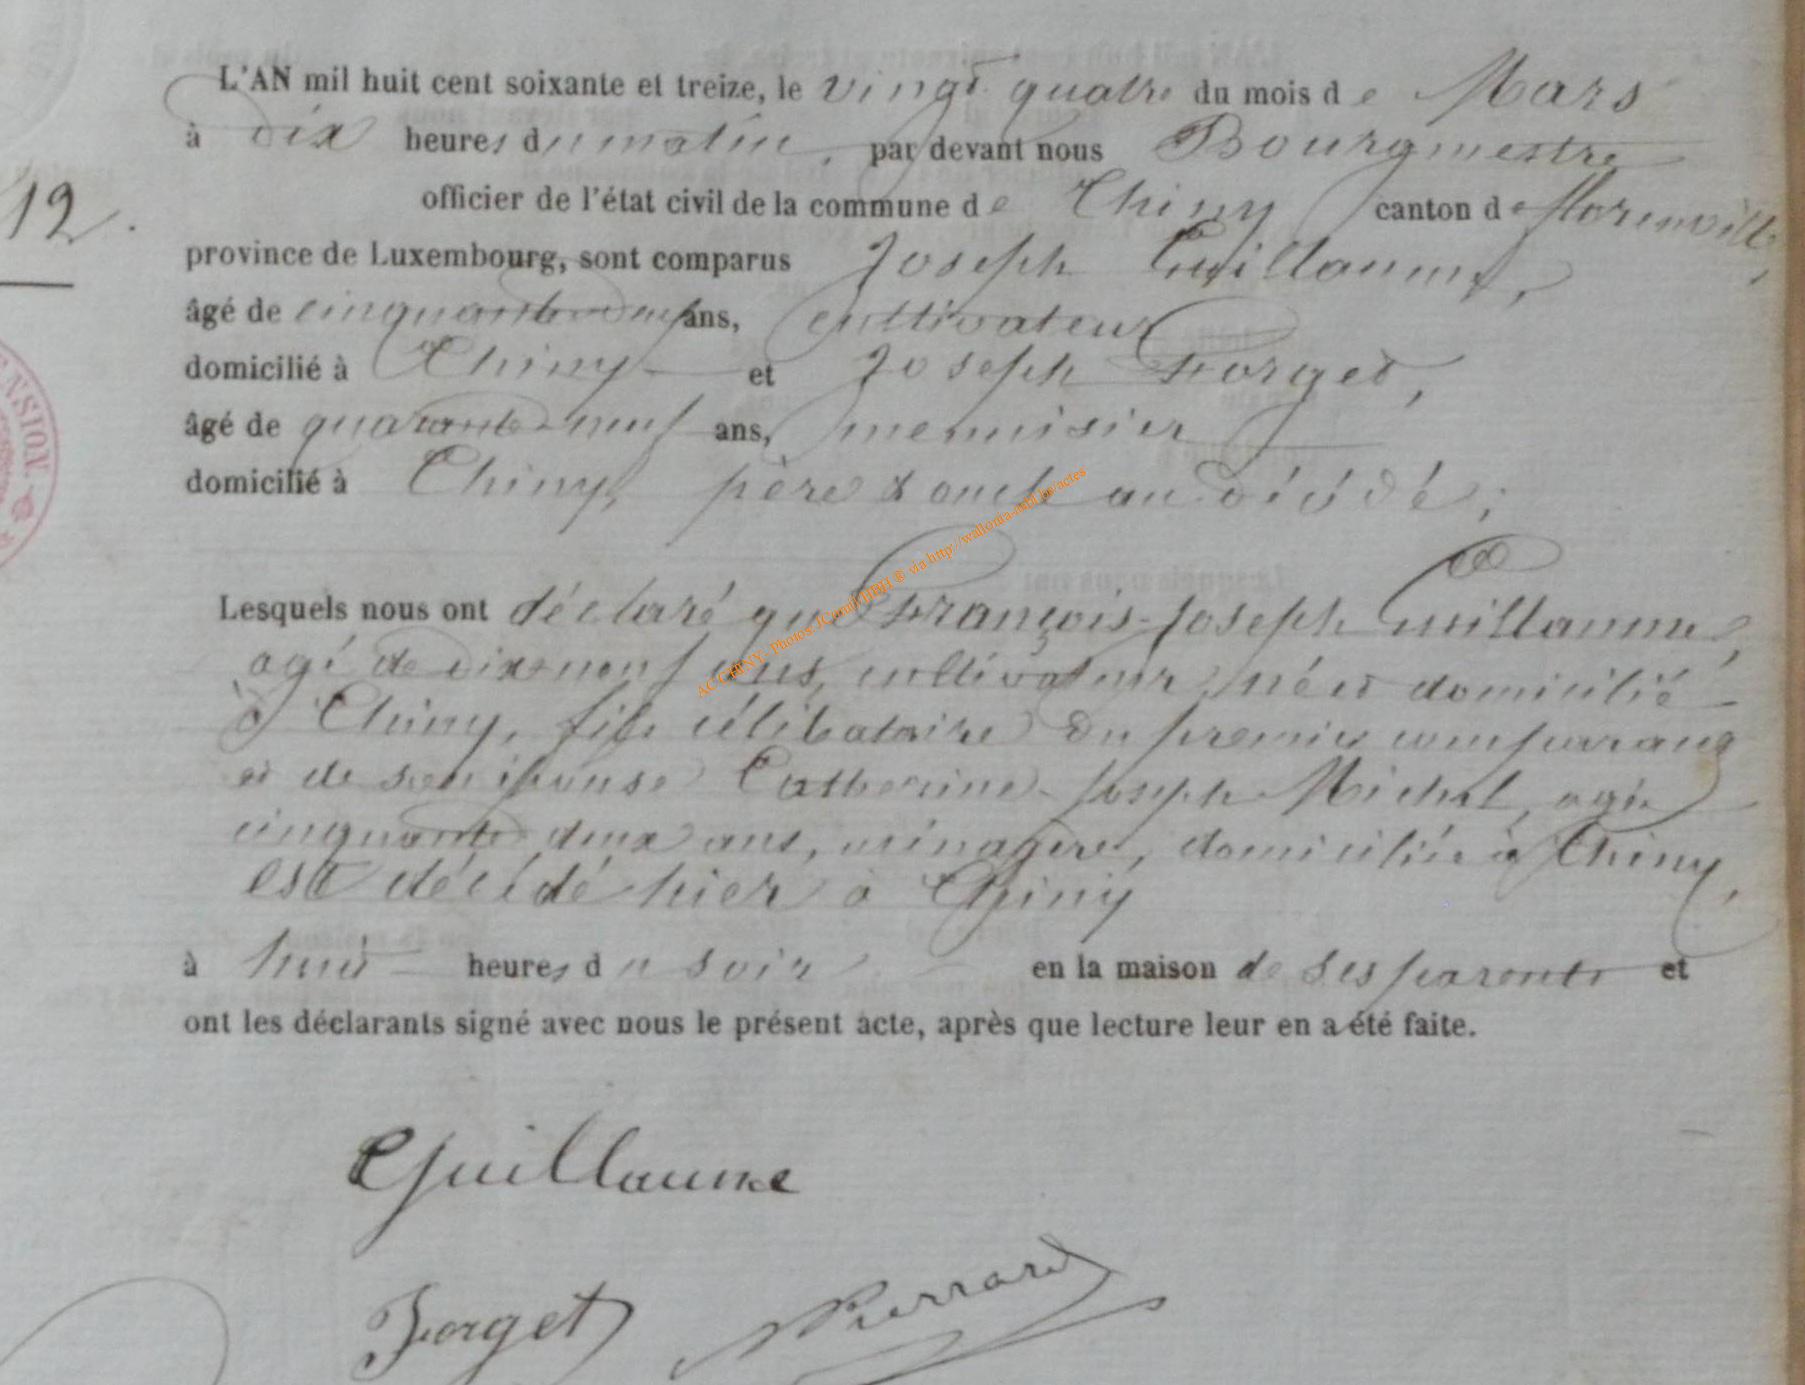 L'AN mil huit cent soixante et treize, le vingt quatre du mois de Mars
à dix heures du matin, par devant nous Bourgmestre
12.
officier de l'état civil de la commune de Chiny canton de Florenville,
province de Luxembourg, sont comparus Joseph Guillaume,
âgé de cinquante ans, cultivateur
domicilié à Chiny et Joseph Forget,
âgé de quarante neuf ans, menuisier
domicilié à Chiny, père & oncle au décédé;
Lesquels nous ont déclaré que François-Joseph Guillaume,
agé de dix neuf ans, cultivateur, né et domicilié
à Chiny, fils célibataire du premier comparant
et de son épouse Catherine-Joseph Michel, agée
cinquante deux ans, ménagère, domiciliée à Chiny,
est décédé hier à Chiny
à huit heures du soir en la maison de ses parents et
ont les déclarants signé avec nous le présent acte, après que lecture leur en a été faite.
Guillaume
Forget Pierrard
NSION
AC CHINY- Photos JCornil HBH ® via http://wallonia-asbl.be/actes